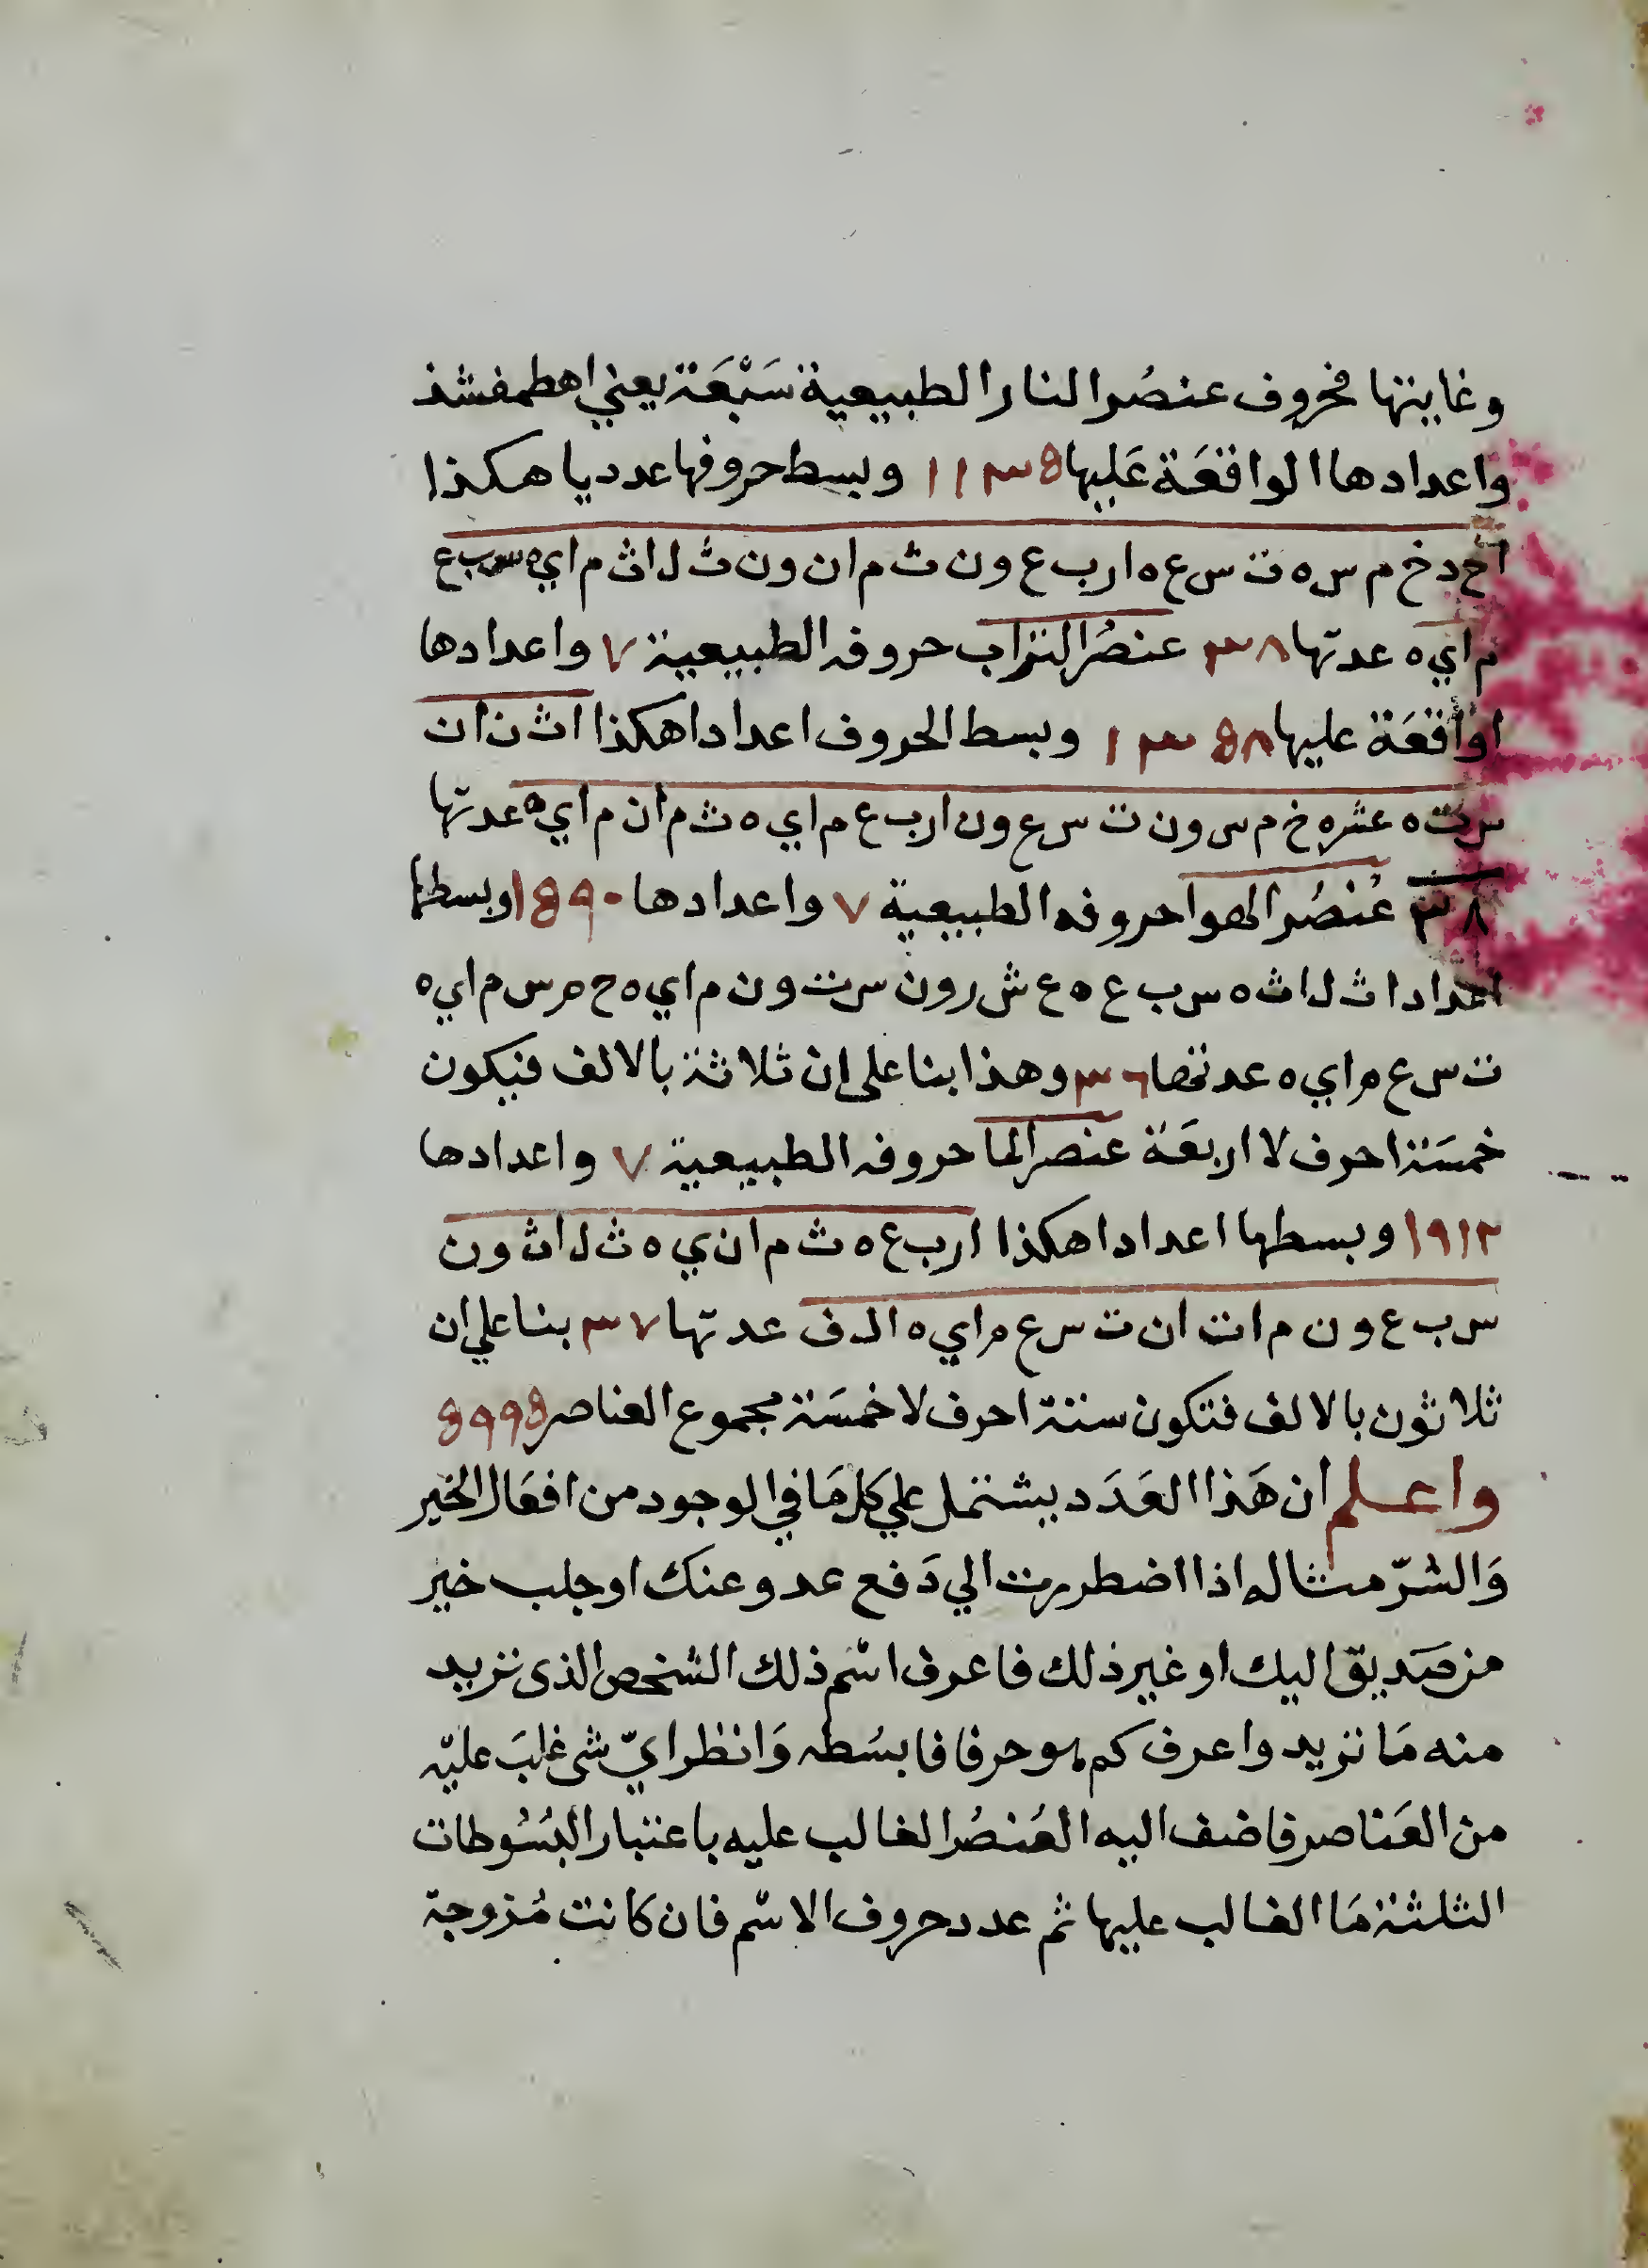 وغايتها فحروف عنصُر النار الطبيعية سَبْعَة يعني اهطمفشذ
واعدادها الواقعَة عَليها ١١٣٥ وبسط حروفها عدديا هكذا
اح د خ م س ه ت س ع ه ا ر ب ع و ن ث م ا ن و ن ث ل ا ث م ا ي ه س ب ع
م ا ي ه عدتها ٣٨ عنصُر التراب حروفه الطبيعية ٧ واعدادها
اواقعَة عليها ١٣٥٨ وبسط الحروف اعدادا هكذا ا ث ن ا ن
س ت ه عشره خ م س و ن ت س ع و ن ا ر ب ع م ا ي ه ث م ا ن م ا ي ه عدتها
٣٨ عُنصُر الهوا حروفه الطبيعية ٧ واعدادها ١٥٩٠ وبسطها
اعدادا ث ل ا ث ه س ب ع ه ع ش ر و ن س ت و ن م ا ي ه خ م س م ا ي ه
ت س ع م ا ي ه عدتها ٣٦ وهذا بنا على ان ثلاثة بالالف فيكون
خمسَة احرف لا اربعَة عنصر الما حروفه الطبيعية ٧ واعدادها
١٩١٢ وبسطها اعدادا هكذا ا ر ب ع ه ث م ا ن ي ه ث ل ا ث و ن
س ب ع و ن م ا ت ا ن ت س ع م ا ي ه ا ل ف عدتها ٣٧ بنا علي ان
ثلاثون بالالف فتكون ستة احرف لا خمسَة مجموع العناصر ٥٩٩٥
واعلم ان هَذا العَدَد يشتمل علي كل مَا في الوجود من افعَال الخير
وَالشرّ مثاله اذا اضطررت الي دَفع عدو عنك او جلب خير
من صَديق اليك او غير ذلك فاعرف اسْم ذلك الشخص الذى تريد
منه مَا تريد واعرف كم هو حرفا فابسُطه وَانظر ايّ شى غلبَ عليْه
من العَناصر فاضف اليه العُنصُر الغالب عليه باعتبار البسُوطات
الثلثة مَا الغالب عليها ثم عدد حروف الاسْم فان كانت مُزوجة